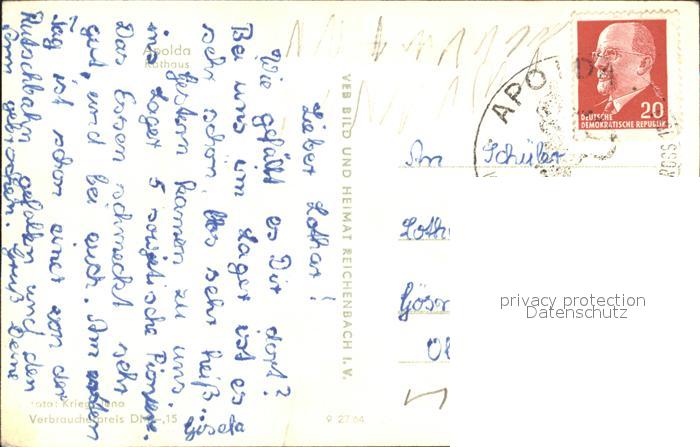 Apolda
Rathaus
Lieber Lothar!
Wie gefällt es Dir dort?
Bei uns im Lager ist es
sehr schön, bloß sehr heiß.
Gestern kamen zu uns
ins Lager 5 sowjetische Pioniere.
Das Essen schmeckt sehr
gut, und bei euch. Am ersten
Tag ist schon einer von der
Rutschbahn gefallen und den
Arm gebrochen. Gruß Deine
Gisela
Foto: Krieg, Jena
Verbraucherpreis DM -,15
9 27 64
VEB BILD UND HEIMAT REICHENBACH I. V.
APOLDA
DEUTSCHE
DEMOKRATISCHE REPUBLIK
20
An Schüler
Loth
Gös
privacy protection
Datenschutz